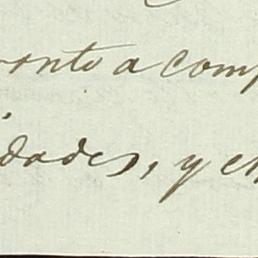 ronto a comp
dades, y en